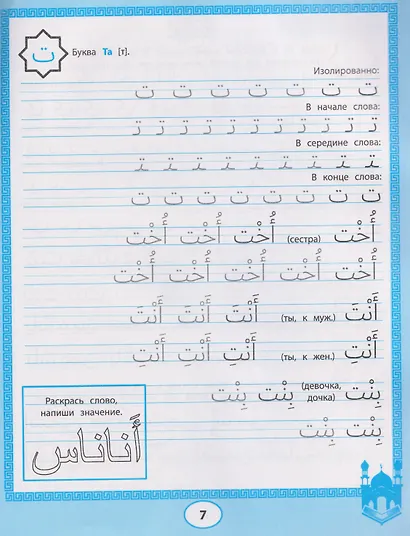 ت Буква Та [т].
Изолированно:
ت ت ت ت ت ت ت ت
В начале слова:
تـ تـ تـ تـ تـ تـ تـ تـ تـ تـ تـ
В середине слова:
ـتـ ـتـ ـتـ ـتـ ـتـ ـتـ ـتـ ـتـ ـتـ
В конце слова:
ـت ـت ـت ـت ـت ـت ـت ـت
أُخْت (сестра) أُخْت أُخْت أُخْت
أُخْت أُخْت أُخْت أُخْت أُخْت
أَنْتَ (ты, к муж.) أَنْتَ أَنْتَ أَنْتَ
أَنْتِ (ты, к жен.) أَنْتِ أَنْتِ أَنْتِ
بِنْت (девочка, дочка) بِنْت بِنْت
بِنْت بِنْت
Раскрась слово,
напиши значение.
أَناناس
7